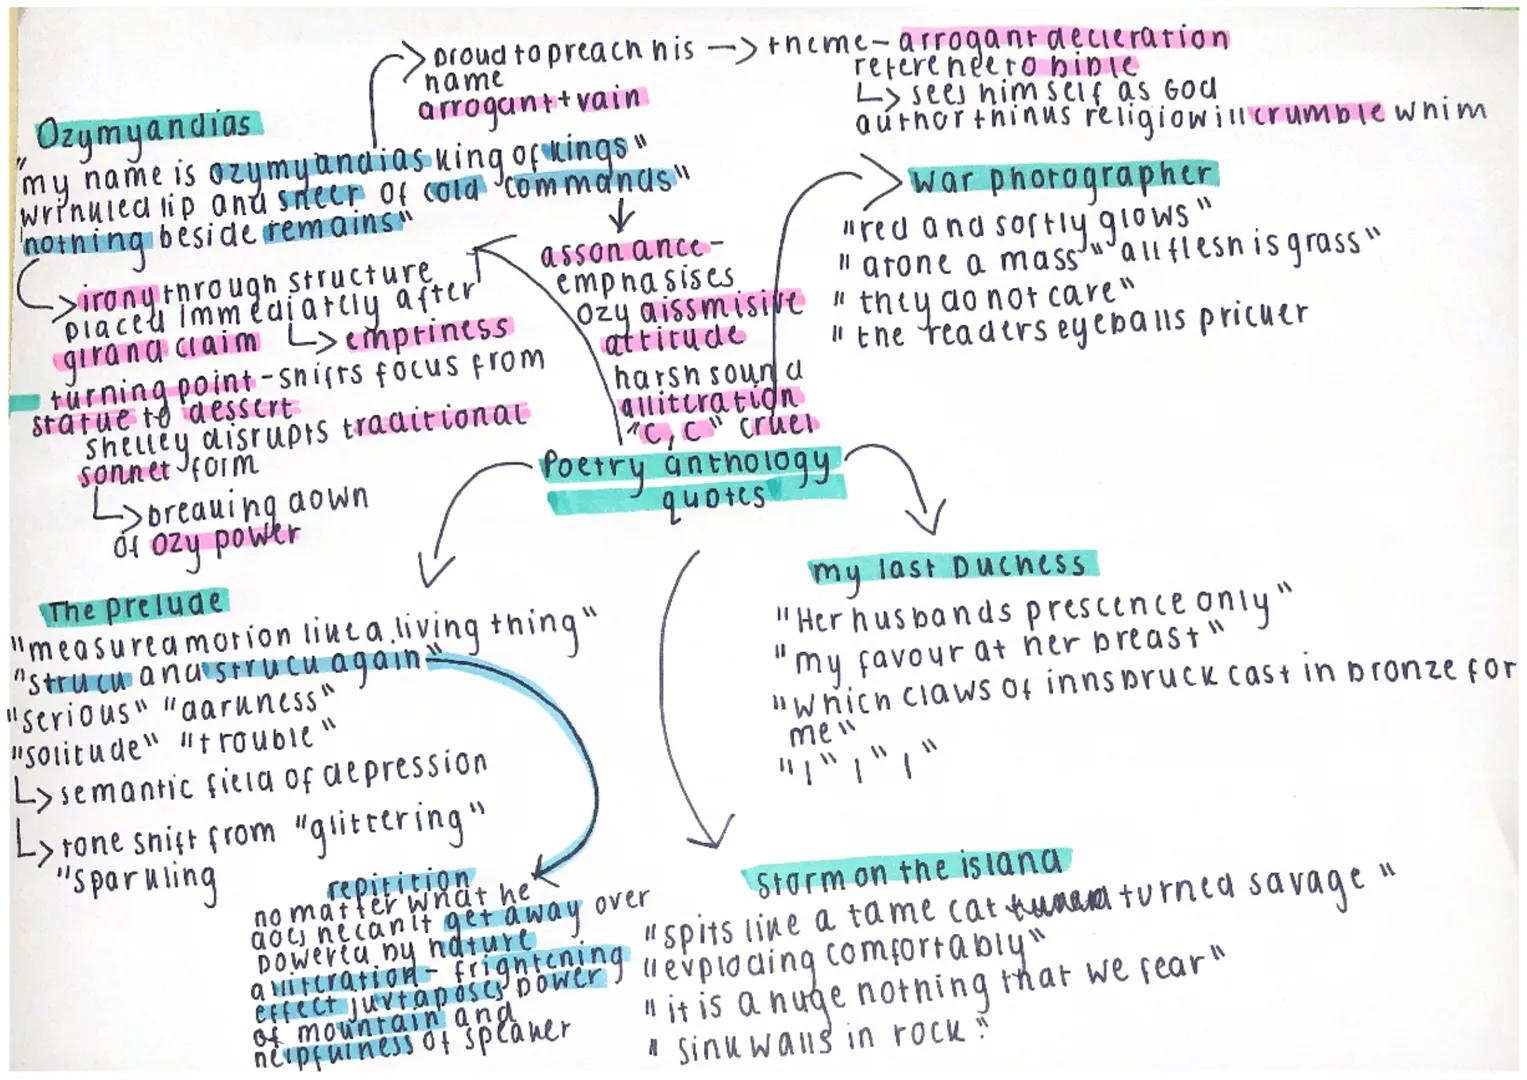 Ozymyandias
"my name is ozymyandias king of kings"
wrinkled lip and sneer of cold commands"
"nothing beside remains"
proud to preach his
name
arrogant + vain
theme - arrogant decleration
reference to bible
sees himself as God
author thinks religio will crumble whim
assonance -
emphasises
ozy dissmisive
attitude
harsh sound
alliteration
"c, c" cruel
irony through structure
placed immediartly after
girand claim
emptiness
turning point - shifts focus from
statue to dessert
Shelley disrupts traditional
sonnet form
breaking down
of ozy power
war photographer
"red and softly glows"
"arone a mass" "all flesh is grass"
"they do not care"
"the readers eyeballs pricker
Poetry anthology
quotes
The prelude
"measured motion like a living thing"
"struck and struck again"
"serious" "darkness"
"solitude" "trouble"
semantic field of depression
tone shift from "glittering"
"sparkling
repitition
no matter what he
does he can't get away over
powered by nature
alliteration - frightening
effect juxtaposes power
of mountain and
helpfulness of speaker
my last Duchess
"Her husbands prescence only"
"my favour at her breast"
"which claws of innsbruck cast in bronze for
me"
"I" "I" "I"
storm on the island
"spits like a tame cat turned savage"
"exploding comfortably"
"it is a huge nothing that we fear"
"sink walls in rock"